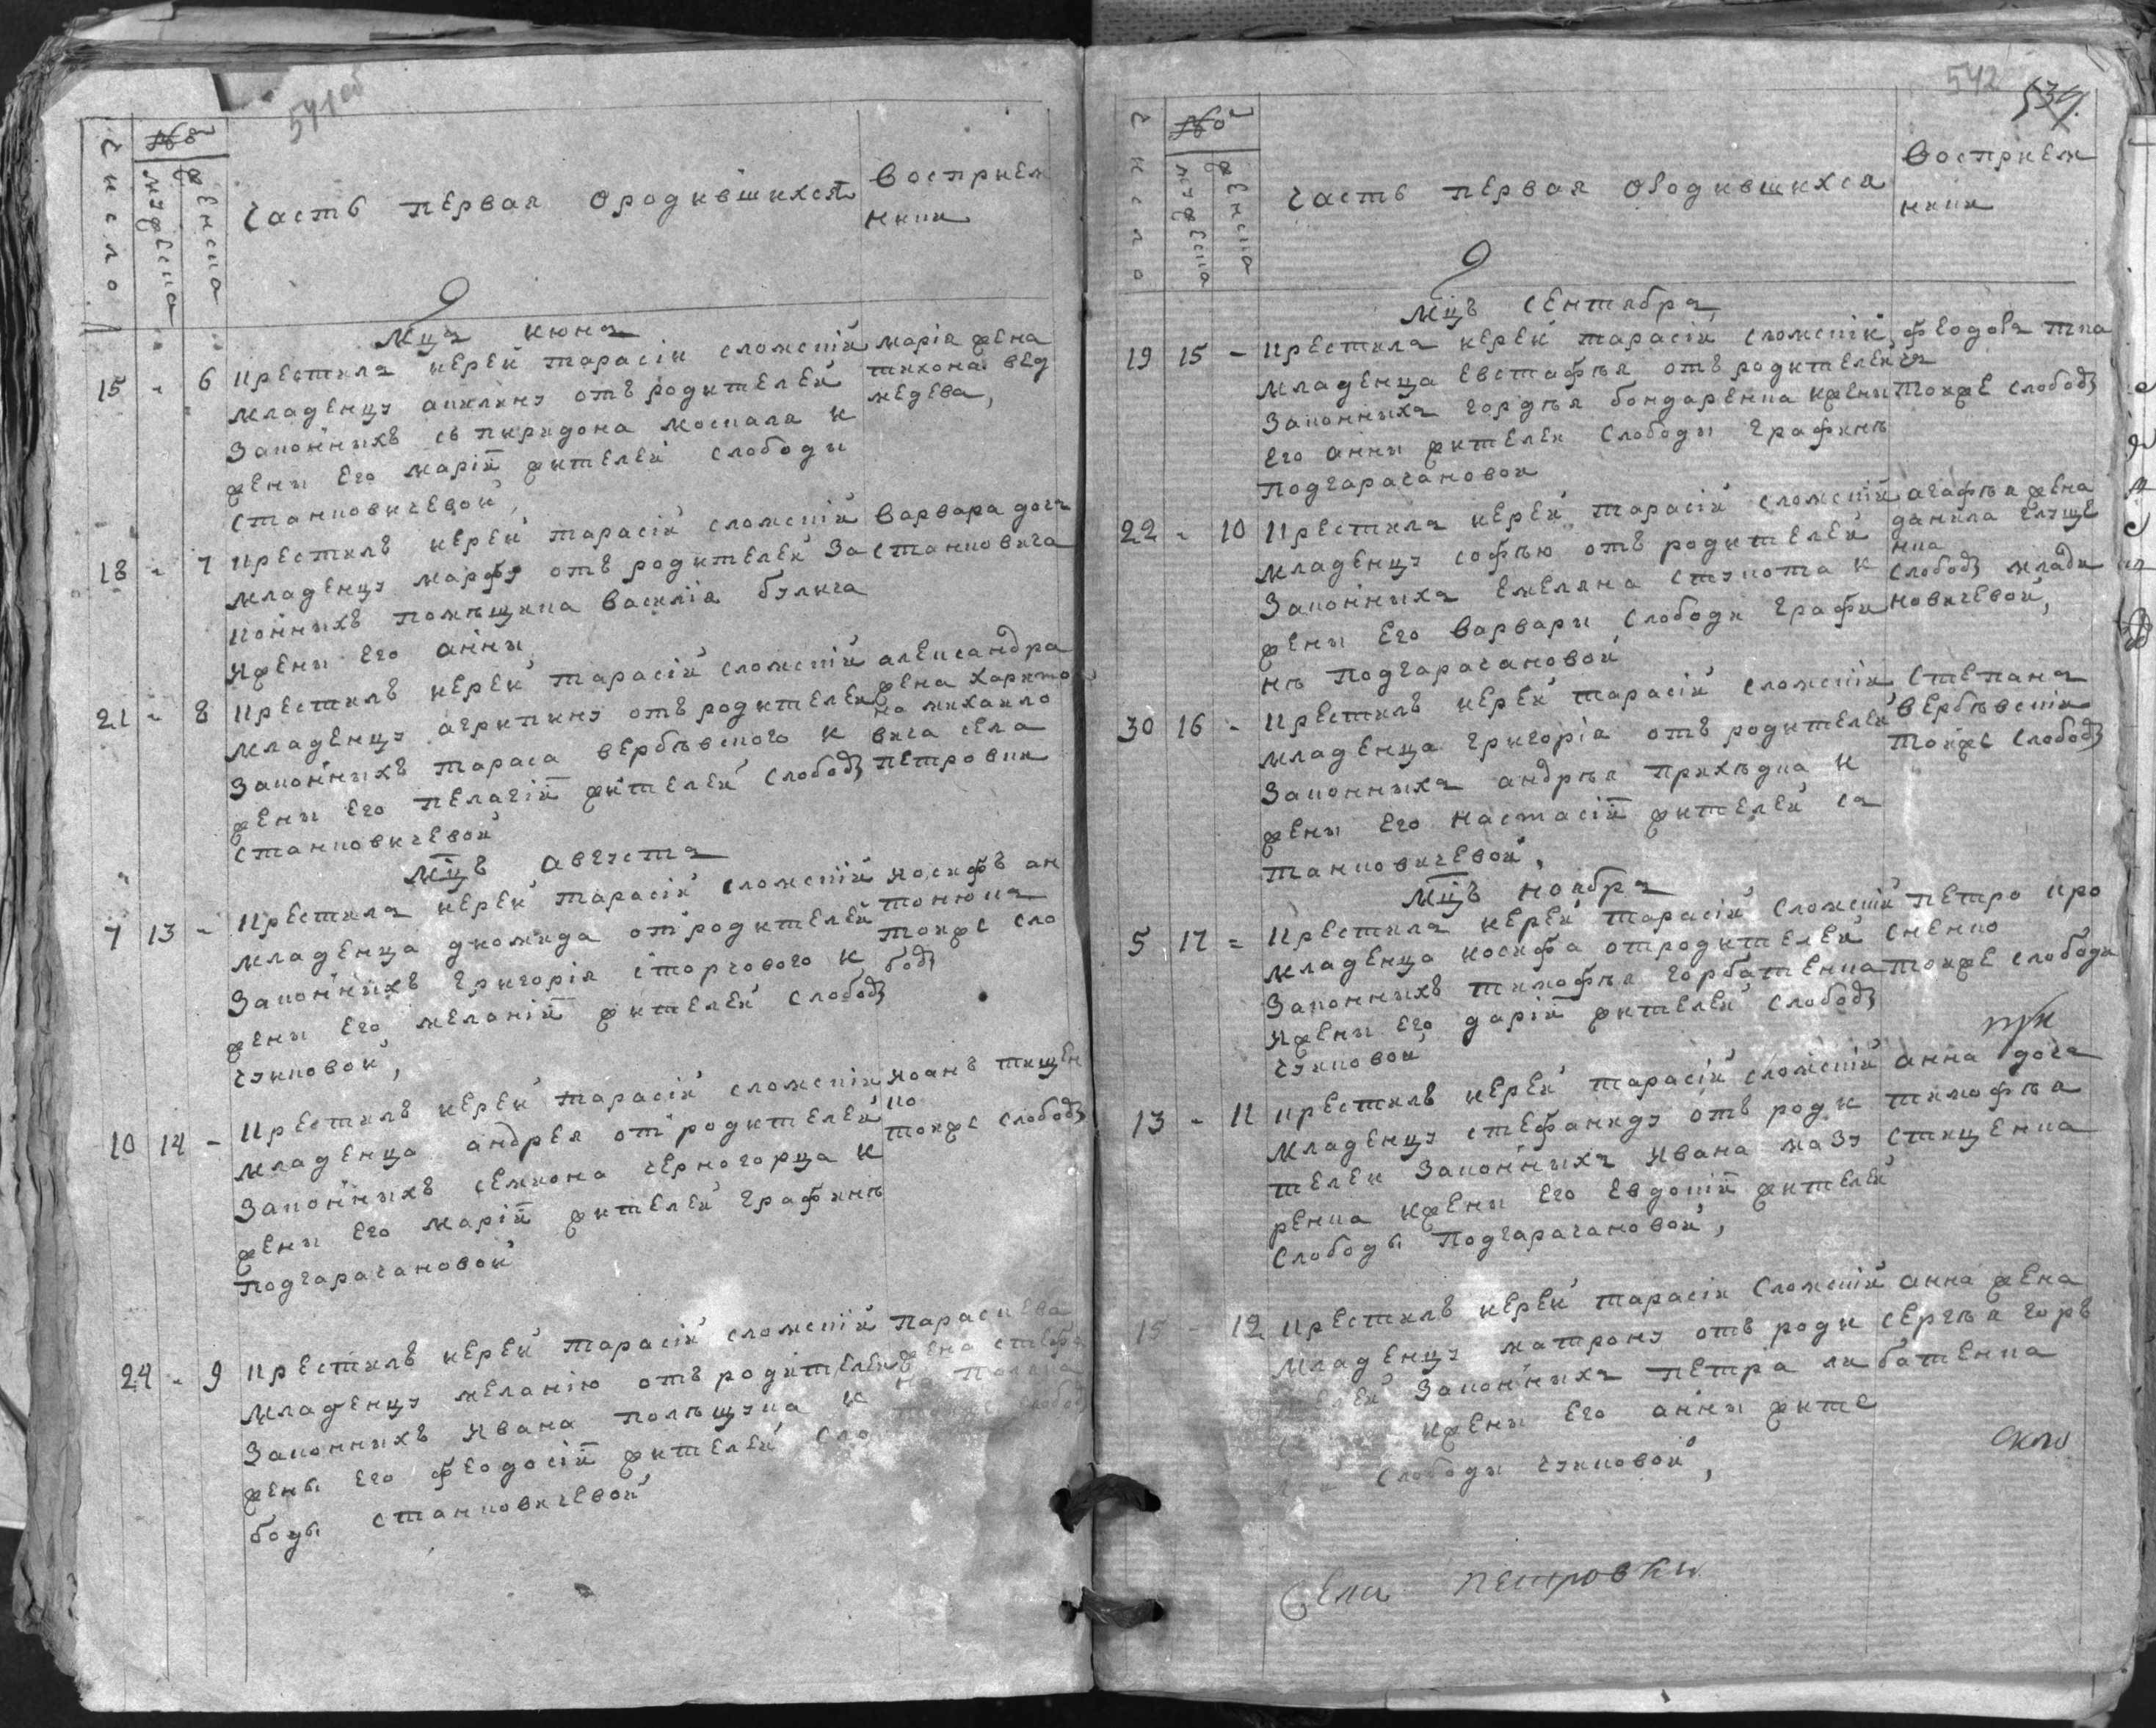 541об
Число
№
мужеска
женска
Часть первая ородившихся
Восприем
ники
Мца июня
15 - 6 Крестилъ иерей тарасій сломскій
младенцу акилину отъ родителей
законныхъ спиридона москаля и
жены его маріи жителей слободы
станковичевой,
марія жена
тихона вед
медева,
18 - 7 Крестилъ иерей тарасій сломскій
младенцу марфу отъ родителей за
конныхъ помѣщика василія булича
ижены его анны
варвара дочь
станковича
21 - 8 Крестилъ иерей тарасій сломскій
младенцу агрипину отъ родителей
законныхъ тараса вербѣвского и
жены его пелагіи жителей слободы
станковичевой
александра
жена харито
на михайло
вича села
петровки
Мцъ августа
7 13 - Крестилъ иерей тарасій сломскій
младенца диомида от родителей
законныхъ григорія сторгового и
жены его меланіи жителей слободы
чуиковой,
иосифъ ан
тонюка
тойже сло
боды
10 14 - Крестилъ иерей тарасій сломскій
младенца андрея от родителей
законныхъ семиона черногорца и
жены его маріи жителей графинѣ
подгарагановой
иоанъ тищен
ко
тойже слободы
24 - 9 Крестилъ иерей тарасій сломскій
младенцу меланію отъ родителей
законныхъ ивана полѣщука и
жены его феодосіи жителей сло
боды станковичевой
параскева
жена
542
539
Число
№
мужеска
женска
Часть первая ородившихся
Восприем
ники
Мцъ сентября
19 15 - Крестилъ иерей тарасій сломскій
младенца евстафѣя отъ родителей
законныхъ гордѣя бондаренка ижены
его анны жителей слободы графинѣ
подгарагановой
феодоръ тка
чъ
тойже слободы
22 - 10 Крестилъ иерей тарасій сломскій
младенцу софѣю отъ родителей
законныхъ емеляна ступота и
жены его варвары слободы графи
нѣ подгарагановой
агафѣя жена
данила глуще
нка
слободы млади
новичевой,
30 16 - Крестилъ иерей тарасій сломскій
младенца григорія отъ родителей
законныхъ андрѣя прихѣдка и
жены его настасіи жителей са
танковичевой,
степанъ
вербѣвскій
тойже слободы
Мцъ ноября
5 17 = Крестилъ иерей тарасій сломскій
младенца иосифа отродителей
законныхъ тимофѣя горбатенка
ижены его дарій жителей слободы
чуиковой
петро про
сненко
тойже слободы
13 - 11 Крестилъ иерей тарасій сломскій
младенцу стефаниду отъ роди
телей законныхъ ивана мазу
ренка ижены его евдокіи жителей
слободы подгарагановой,
анна дочь
тимофѣя
стиценка
15 - 12 Крестилъ иерей тарасій сломскій
младенцу матрону отъ роди
телей законныхъ петра ли
ижены его анны жите
лей слободы чуиковой,
анна жена
сергѣя горъ
батенка
Села петровки